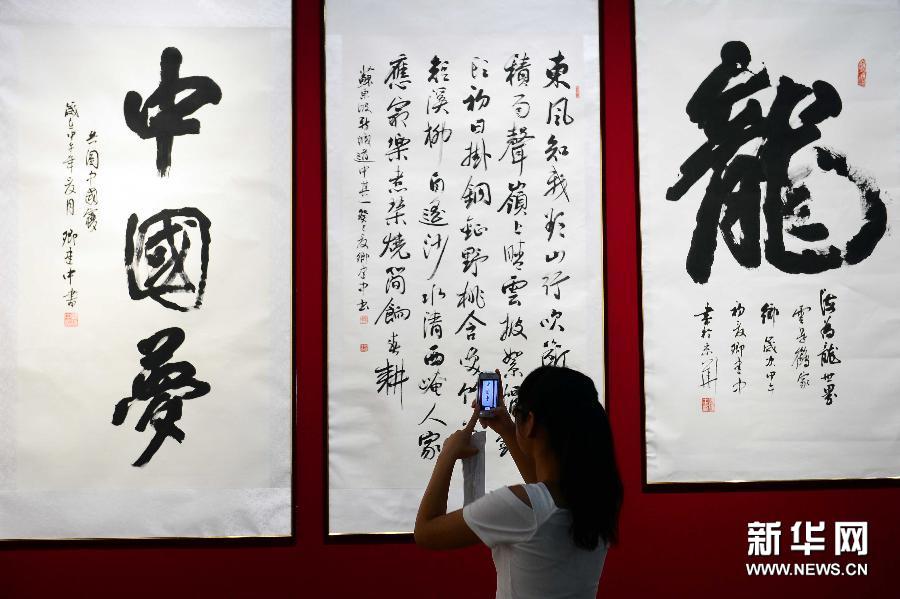 中國夢
共圓中國夢
歲在甲午年夏月 卿建中書
東風知我欲山行吹斷
積雨聲嶺上晴雲披絮帽
頭初日掛銅鉦野桃含笑竹
短溪柳自搖沙水清西崦人家
應最樂煮葵燒筍餉春耕
蘇東坡新城道中其一癸巳夏卿建中書
龍
海為龍世界
雲是鶴家
鄉 歲次甲午
初夏卿建中
書於京華
新华网
WWW.NEWS.CN